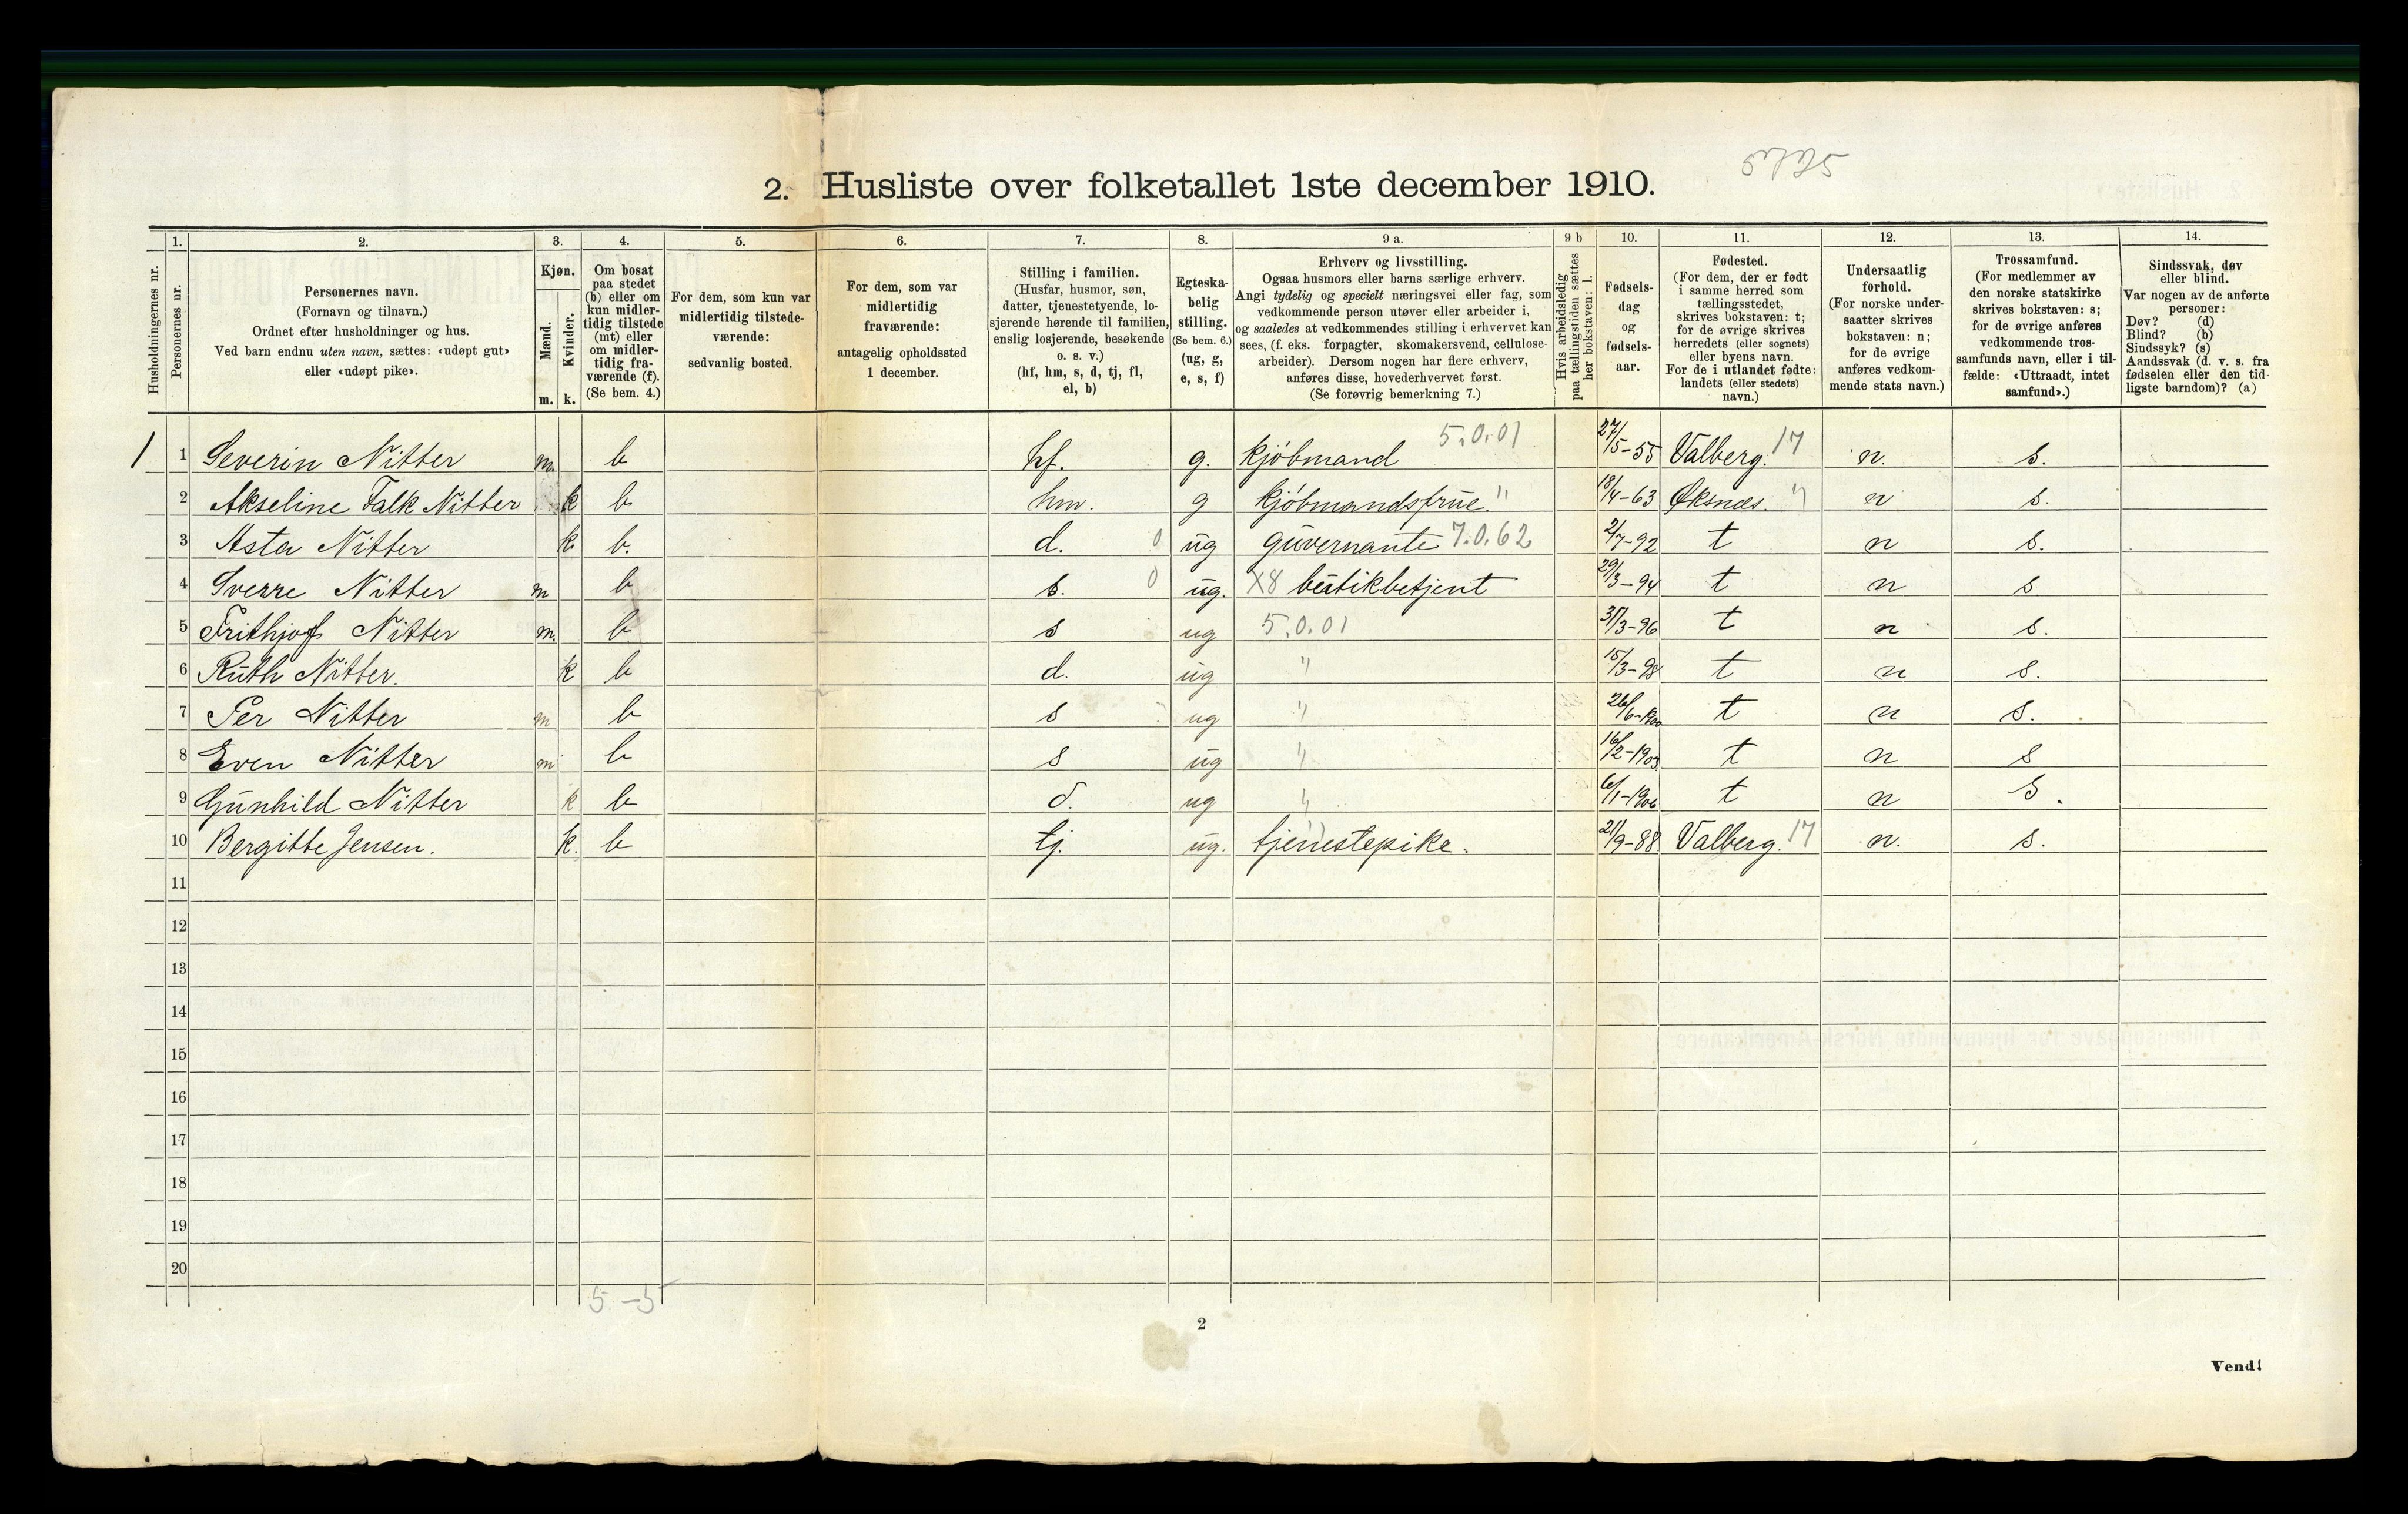 5725
2. Husliste over folketallet 1ste december 1910.
Husholdningernes nr.
1. Personernes nr.
2. Personernes navn. (Fornavn og tilnavn.) Ordnet efter husholdninger og hus. Ved barn endnu uten navn, sættes: «udøpt gut» eller «udøpt pike».
3. Kjøn. Mænd. m. Kvinder. k.
4. Om bosat paa stedet (b) eller om kun midlertidig tilstede (mt) eller om midlertidig fraværende (f). (Se bem. 4.)
5. For dem, som kun var midlertidig tilstedeværende: sedvanlig bosted.
6. For dem, som var midlertidig fraværende: antagelig opholdssted 1 december.
7. Stilling i familien. (Husfar, husmor, søn, datter, tjenestetyende, losjerende hørende til familien, enslig losjerende, besøkende o. s. v.) (hf, hm, s, d, tj, fl, el, b)
8. Egteskabelig stilling. (Se bem. 6.) (ug, g, e, s, f)
9 a. Erhverv og livsstilling. Ogsaa husmors eller barns særlige erhverv. Angi tydelig og specielt næringsvei eller fag, som vedkommende person utøver eller arbeider i, og saaledes at vedkommendes stilling i erhvervet kan sees, (f. eks. forpagter, skomakersvend, cellulosearbeider). Dersom nogen har flere erhverv, anføres disse, hovederhvervet først. (Se forøvrig bemerkning 7.)
9 b Hvis arbeidsledig paa tællingstiden sættes her bokstaven: l.
10. Fødselsdag og fødselsaar.
11. Fødested. (For dem, der er født i samme herred som tællingsstedet, skrives bokstaven: t; for de øvrige skrives herredets (eller sognets) eller byens navn. For de i utlandet fødte: landets (eller stedets) navn.)
12. Undersaatlig forhold. (For norske undersaatter skrives bokstaven: n; for de øvrige anføres vedkommende stats navn.)
13. Trossamfund. (For medlemmer av den norske statskirke skrives bokstaven: s; for de øvrige anføres vedkommende trossamfunds navn, eller i tilfælde: «Uttraadt, intet samfund».)
14. Sindssvak, døv eller blind. Var nogen av de anførte personer: Døv? (d) Blind? (b) Sindssyk? (s) Aandssvak (d. v. s. fra fødselen eller den tidligste barndom)? (a)
1 1 Severin Nitter m. b hf. g. kjöbmand 5.0.01 27/5-55 Valberg. 17 n. s.
2 Akseline Falk Nitter k b hm. g kjöbmandsfrue. " 18/4-63 Øksnæs. " n s.
3 Asta Nitter k. b. d. 0 ug guvernante 7.0.62 2/7-92 t n s.
4 Sverre Nitter m b s. 0 ug. X8 butikbetjent 29/3-94 t n s
5 Frithjof Nitter m. b s ug 5.0.01 31/3-96 t n s.
6 Ruth Nitter. k b d. ug " 15/3-98 t n s.
7 Per Nitter m b s ug " 26/6-1900 t n s.
8 Even Nitter m b s ug " 16/2-1903 t n s
9 Gunhild Nitter k b d. ug " 6/1-1906 t n S.
10 Bergitte Jensen. k. b tj. ug. tjenestepike. 21/9-88 Valberg. 17 n. s.
11
12
13
14
15
16
17
18
19
20
5-5
2
Vend!